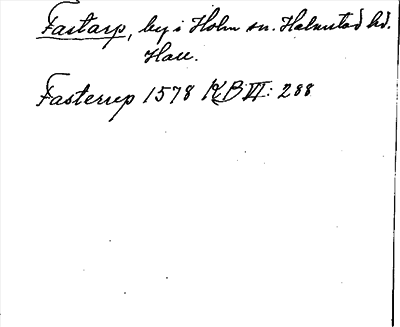 Fastarp, by i Holm sn. Halmstad hd.
Hall.
Fasterup 1578 KB VI: 288